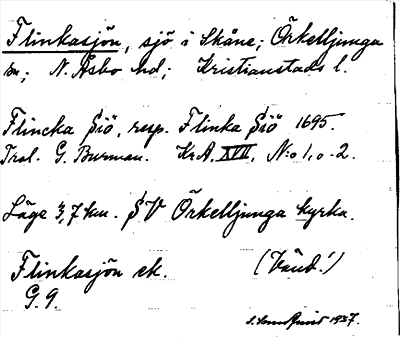 Flinkasjön, sjö i Skåne; Örkelljunga
sn; N. Åsbo hd; Kristianstads l.
Flincka Siö, resp. Flinka Siö 1695.
Tral. G. Burman. KrA. XVII, N:o 1, o. 2.
Läge 3,7 km. SV Örkelljunga kyrka.
Flinkasjön ek. (Vänd!)
G. 9.
1937.